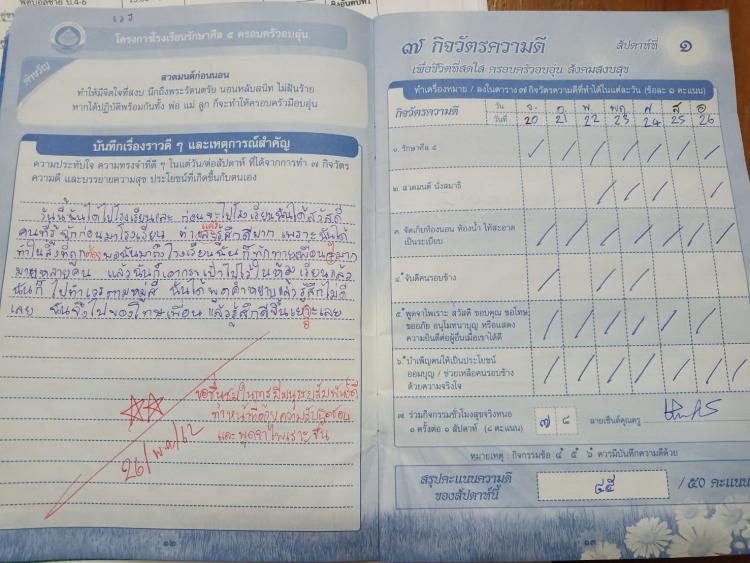 โครงการโรงเรียนรักษาศีล ๕ ครอบครัวอบอุ่น
คำขวัญ
สวดมนต์ก่อนนอน
ทำให้มีจิตใจที่สงบ นึกถึงพระรัตนตรัย นอนหลับสนิท ไม่ฝันร้าย
หากได้ปฏิบัติพร้อมกันทั้ง พ่อ แม่ ลูก ก็จะทำให้ครอบครัวมีอบอุ่น
บันทึกเรื่องราวดี ๆ และเหตุการณ์สำคัญ
ความประทับใจ ความทรงจำที่ดี ๆ ในแต่วัน/ต่อสัปดาห์ ที่ได้จากการทำ ๗ กิจวัตร
ความดี และบรรยายความสุข ประโยชน์ที่เกิดขึ้นกับตนเอง
วันนี้ฉันได้ไปโรงเรียนและ ก่อนจะไปโรงเรียนฉันได้สวัสดี
คนที่รู้จักก่อนมาโรงเรียน ทำแล้วรู้สึกดีมาก เพราะฉันได้
ทำในสิ่งที่ถูกต้อง พอฉันมาถึงโรงเรียนฉันก็ทักทายเพื่อนๆมาก
มายหลายคน แล้วฉันก็เอากระเป๋าไปไว้ในห้องเรียนแล้ว
ฉันก็ไปทำเวรตามหมู่สี ฉันได้พูดคำหยาบแล้วรู้สึกไม่ดี
เลย ฉันจึงไปขอโทษเพื่อน แล้วรู้สึกดีขึ้นเยอะเลย
ขอชื่นชมในการมีมนุษยสัมพันธ์ดี
ทำหน้าที่ด้วยความรับผิดชอบ
และพูดจาไพเราะขึ้น
26/พ.ค/62
๑๒
๗ กิจวัตรความดี
สัปดาห์ที่ ๑
เพื่อชีวิตที่สดใส ครอบครัวอบอุ่น สังคมสงบสุข
ทำเครื่องหมาย / ลงในตาราง ๗ กิจวัตรความดีที่ทำได้ในแต่ละวัน (ข้อละ ๑ คะแนน)
กิจวัตรความดี วัน จ. อ. พ. พฤ ศ. ส อ
วันที่ 20 21 22 23 24 25 26
๑. รักษาศีล ๕
๒. สวดมนต์ นั่งสมาธิ
๓. จัดเก็บห้องนอน ห้องน้ำ ให้สะอาด
เป็นระเบียบ
๔. จับดีคนรอบข้าง
๕. พูดจาไพเราะ สวัสดี ขอบคุณ ขอโทษ
ขออภัย อนุโมทนาบุญ หรือแสดง
ความยินดีต่อผู้อื่นเมื่อเราได้ดี
๖. บำเพ็ญตนให้เป็นประโยชน์
ออมบุญ / ช่วยเหลือคนรอบข้าง
ด้วยความจริงใจ
๗. ร่วมกิจกรรมชั่วโมงสุขจริงหนอ
๑ ครั้งต่อ ๑ สัปดาห์ (๘ คะแนน)
๗ ๘ ลายเซ็นต์คุณครู
หมายเหตุ : กิจกรรมข้อ ๔ ๕ ๖ ควรมีบันทึกความดีด้วย
สรุปคะแนนความดี
ของสัปดาห์นี้
๔๕ / ๕๐ คะแนน
๑๓